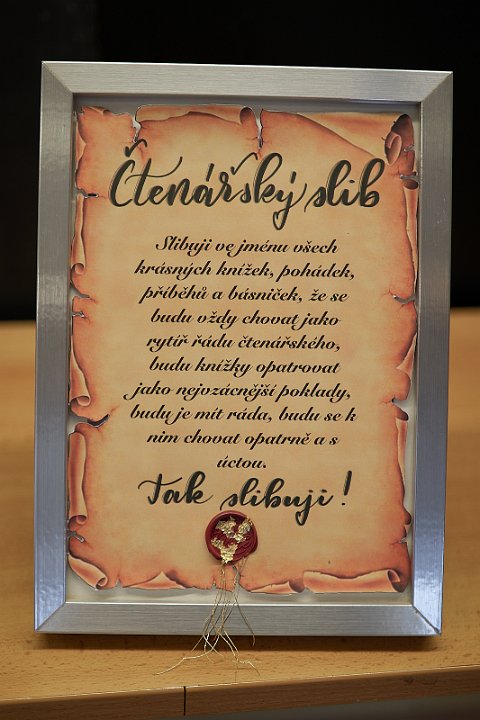 Čtenářský slib
Slibuji ve jménu všech
krásných knížek, pohádek,
příběhů a básniček, že se
budu vždy chovat jako
rytíř řádu čtenářského,
budu knížky opatrovat
jako nejvzácnější poklady,
budu je mít ráda, budu se k
nim chovat opatrně a s
úctou.
Tak slibuji!